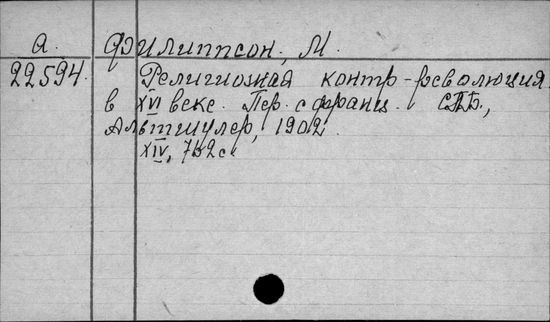 А. Филиппсон, М.
22594. Религиозная контр-революция
в XVI веке. Пер. с франц. СПБ.,
Альтшулер, 1902.
XIV, 752с